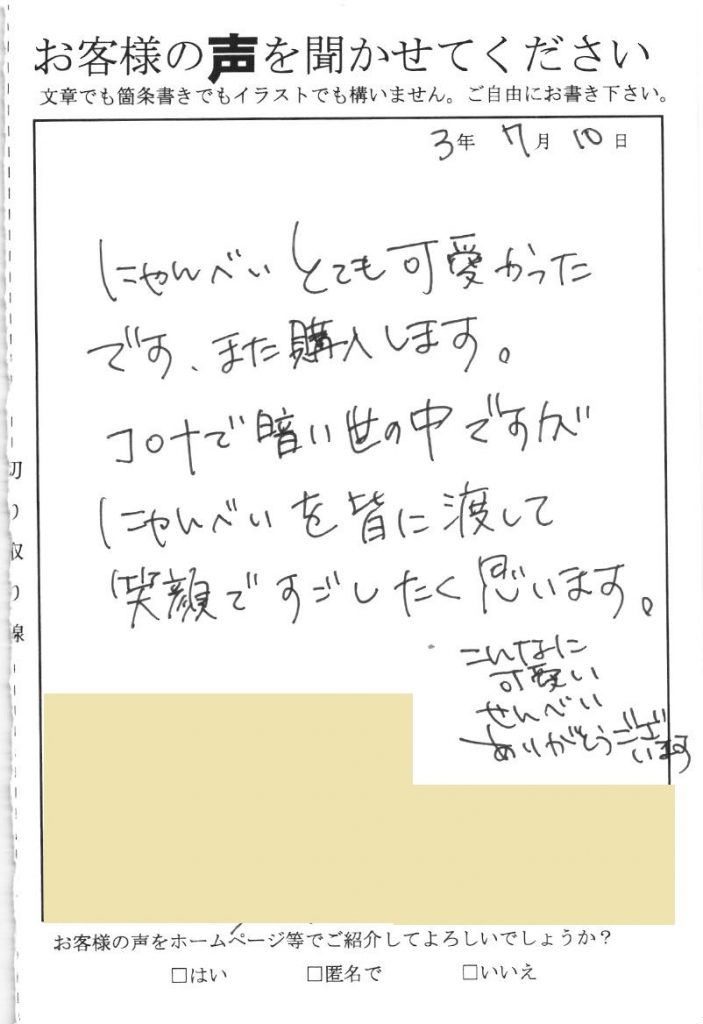 お客様の声を聞かせてください
文章でも箇条書きでもイラストでも構いません。ご自由にお書き下さい。
3年 7月 10日
にゃんべいとても可愛かった
です、また購入します。
コロナで暗い世の中ですが
にゃんべいを皆に渡して
笑顔ですごしたく思います。
こんなに
可愛い
せんべい
ありがとうござ
います
切り取り線
お客様の声をホームページ等でご紹介してよろしいでしょうか？
□はい □匿名で □いいえ